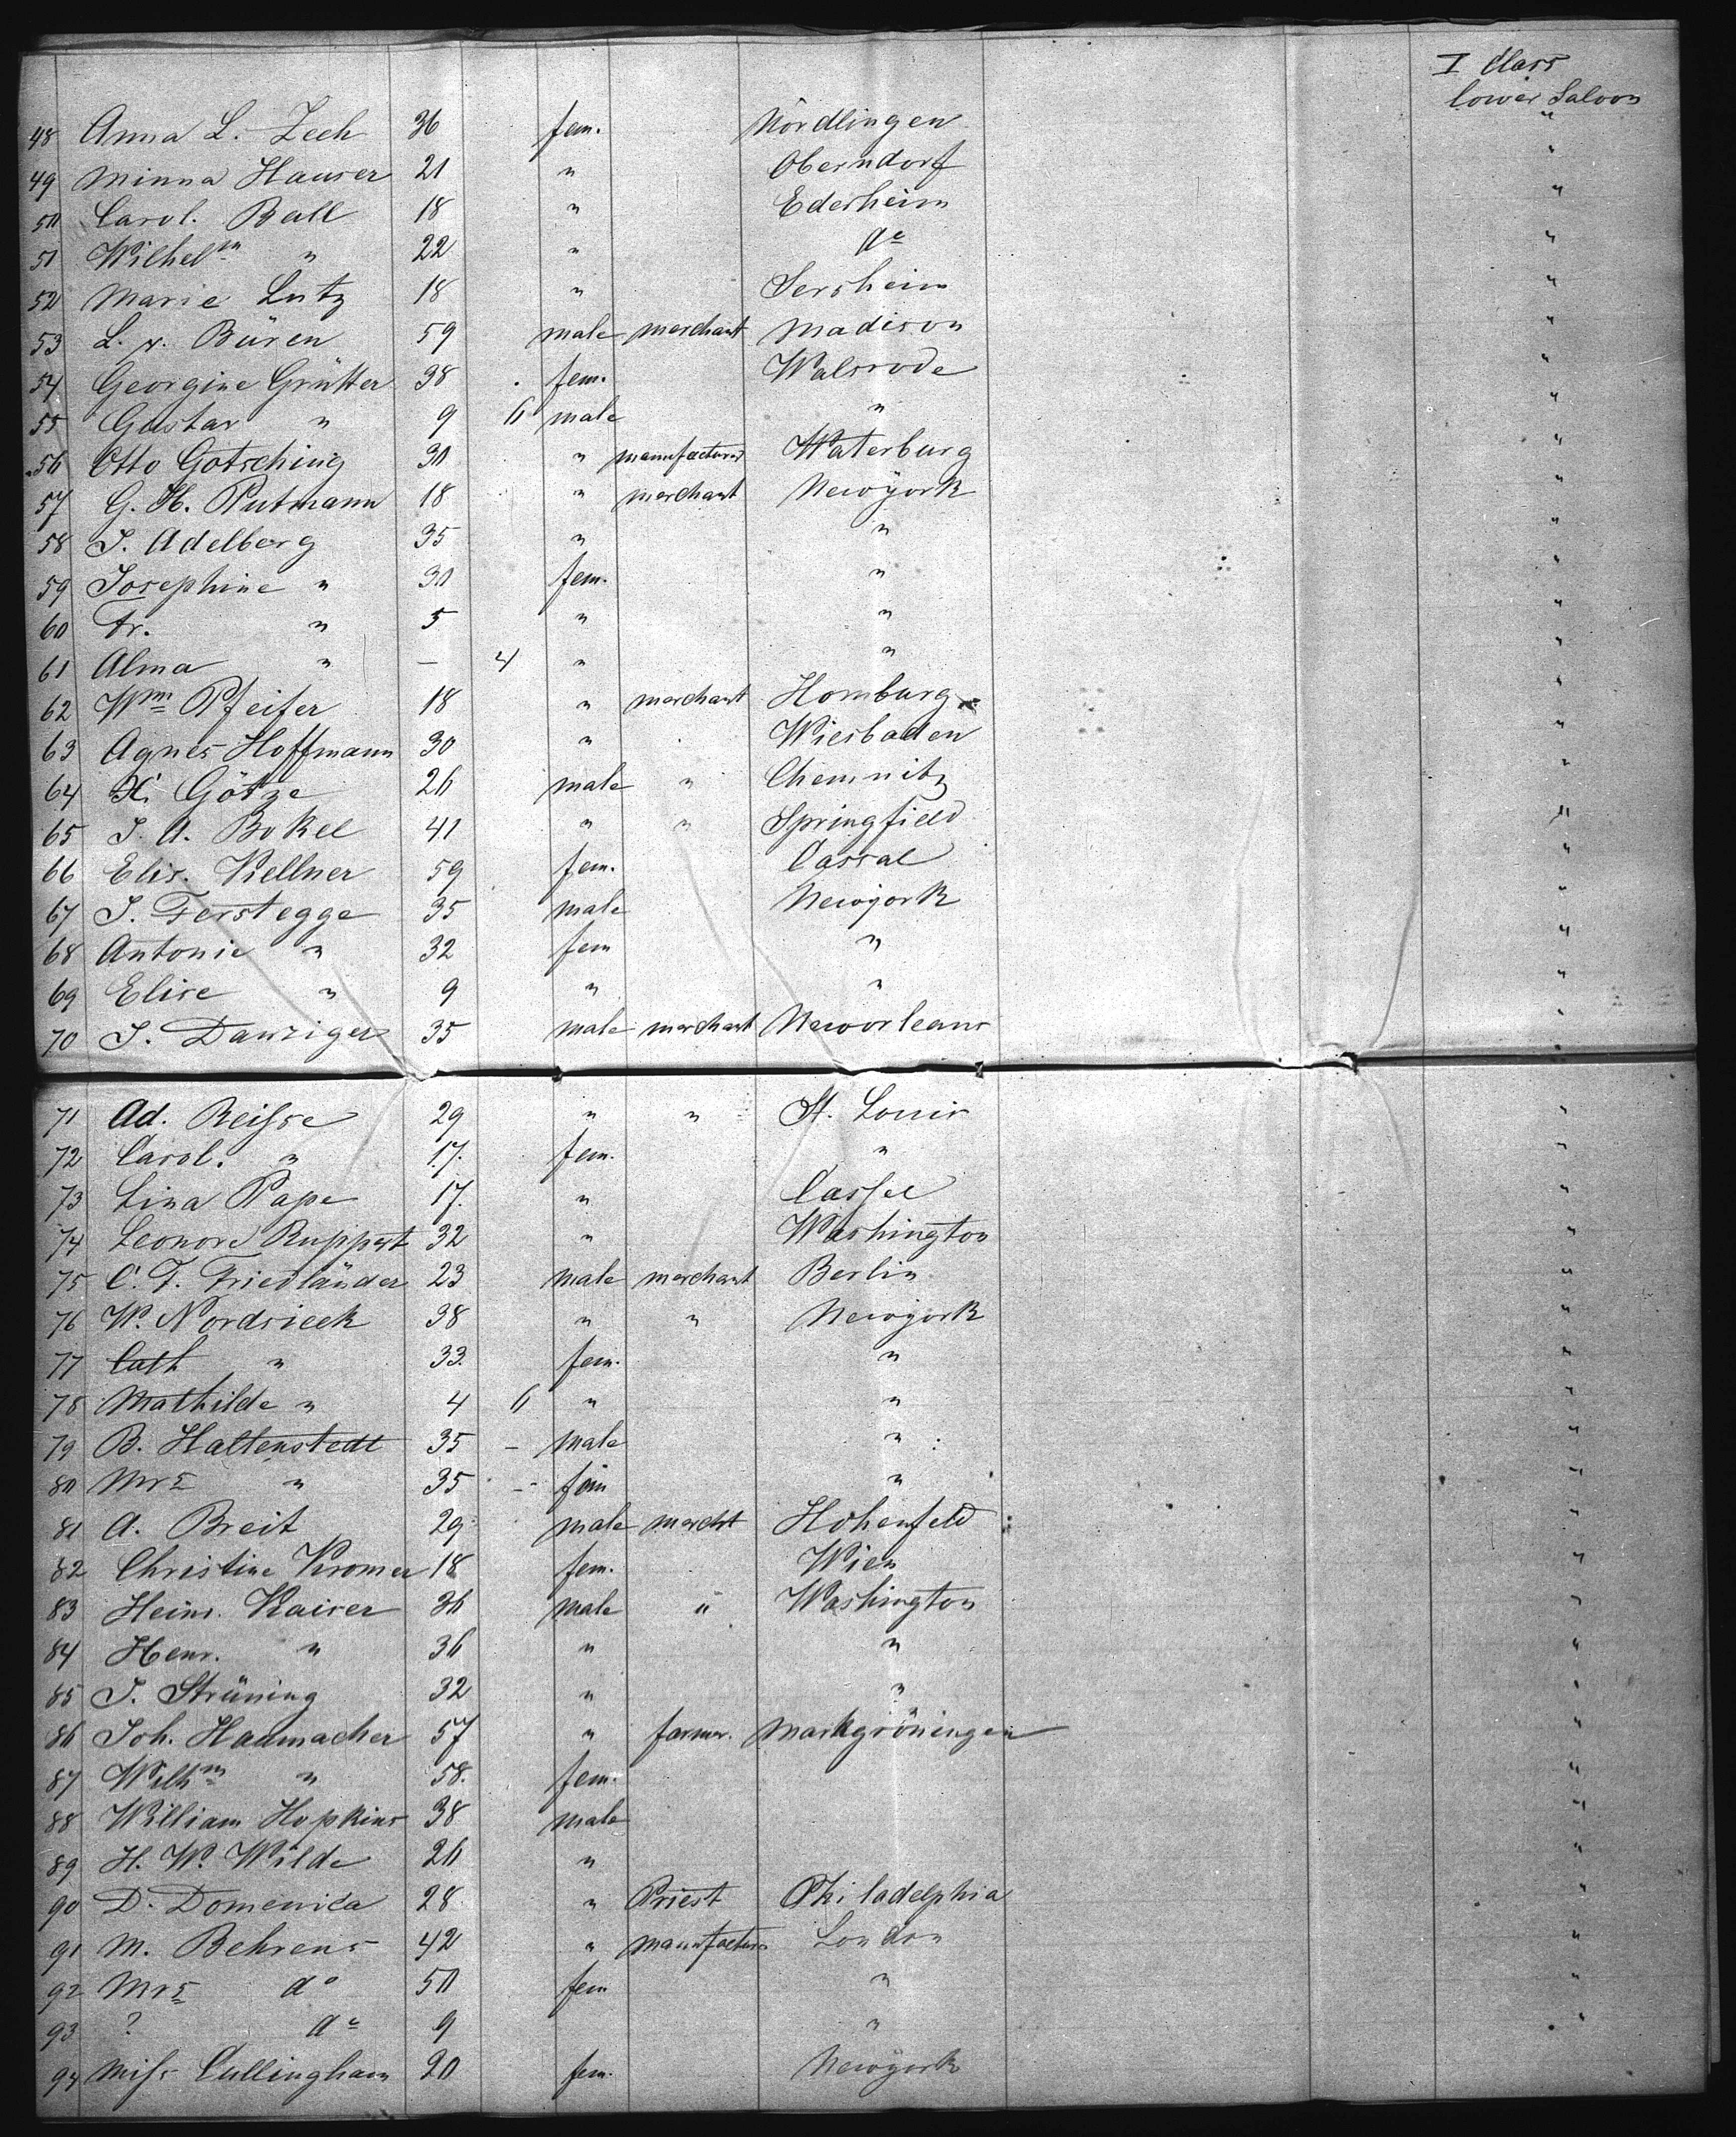 I Class
lower Saloon
48 Anna L. Zech 36 fem. Nördlingen "
49 Minna Hauser 21 " Oberndorf "
50 Carol. Ball 18 " Ederheim "
51 Wilhelm " 22 " do "
52 Marie Lutz 18 " Sersheim "
53 L. v. Büren 59 male merchant Madison "
54 Georgine Grütter 38 fem. Walsrode "
55 Gustav " 9 6 male " "
56 Otto Gotsching 30 " manufacturer Waterburg "
57 G. H. Putmann 18 " merchant Newyork "
58 J. Adelberg 35 " " "
59 Josephine " 30 fem. " "
60 Fr. " 5 " " "
61 Alma " – 4 " " "
62 Wm Pfeifer 18 " merchant Homburg "
63 Agnes Hoffmann 30 " Wiesbaden "
64 H. Götze 26 male " Chemnitz "
65 J. A. Bokel 41 " " Springfield "
66 Elis. Kellner 59 fem. Cassal "
67 J. Terstegge 35 male Newyork "
68 Antonie " 32 fem " "
69 Elise " 9 " " "
70 J. Danziger 35 male merchant Neworleans "
71 Ad. Reisse 29 " " St. Louis "
72 Carol. " 17. fem. " "
73 Lina Pape 17. " Cassel "
74 Leonore Ruppert 32 " Washington "
75 C. F. Friedländer 23 male merchant Berlin "
76 W. Nordsieck 38 " " Newyork "
77 Cath " 33. fem. " "
78 Mathilde " 4 6 " " "
79 B. Haltenstedt 35 – male " "
80 Mrs " 35 – fem " "
81 A. Breit 29 male mercht Hohenfeld "
82 Christine Kromer 18 fem. Wien "
83 Heinr. Kaiser 36 male " Washington "
84 Henr. " 36 " " "
85 J. Strüning 32 " " "
86 Joh. Haumacher 57 " farmer. Markgröningen "
87 Wilhm " 58. fem. "
88 William Hopkins 38 male "
89 H. W. Wilde 26 " "
90 D. Domenica 28 " Priest Philadelphia "
91 M. Behrens 42 " manufacturer London "
92 Mrs do 50 fem " "
93 ? do 9 " "
94 Miss Cullingham 20 fem. Newyork